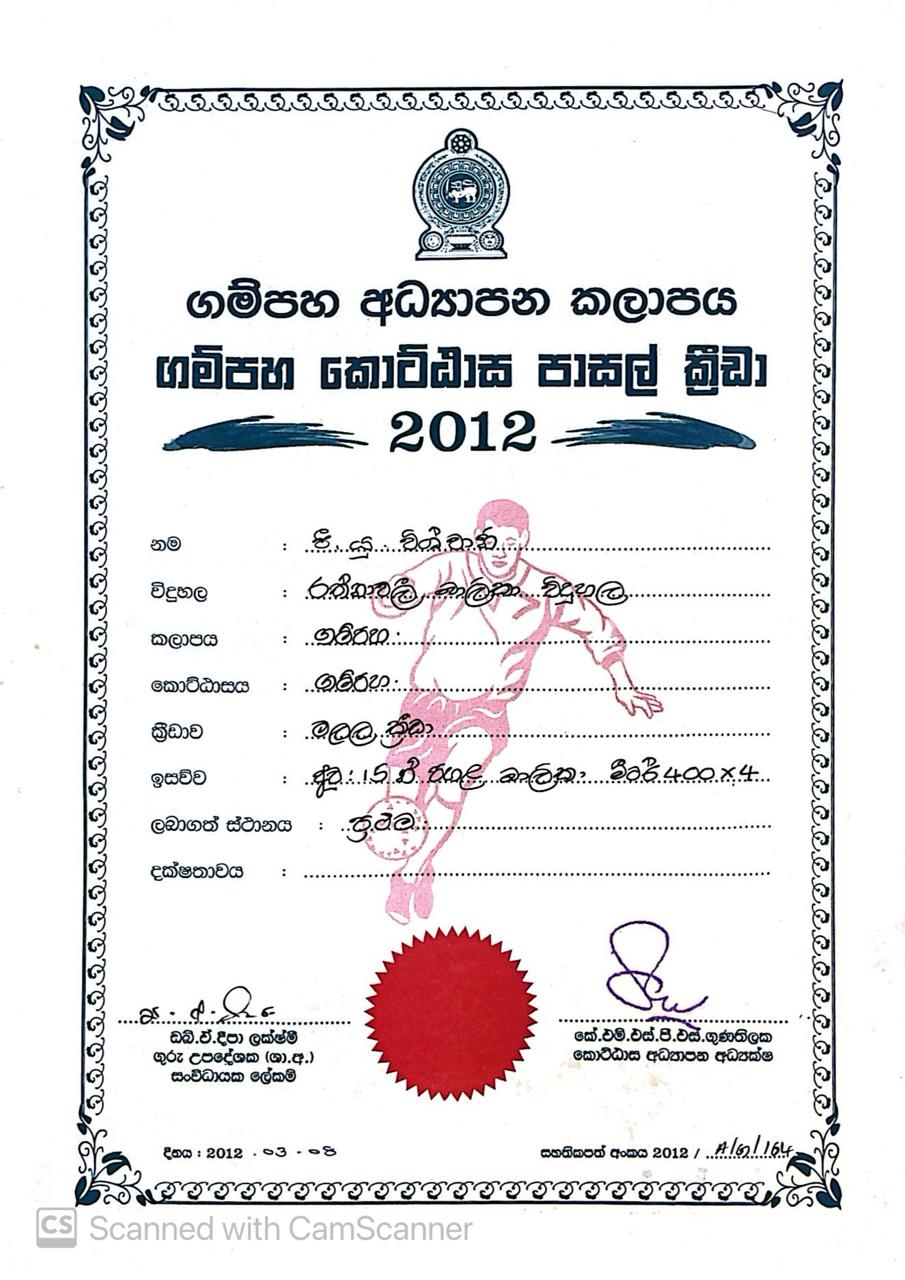 ගම්පහ අධ්‍යාපන කලාපය
ගම්පහ කොට්ඨාස පාසල් ක්‍රීඩා
2012
නම : පී. යු. විශ්වානි
විදුහල : රත්නාවලී බාලිකා විදුහල
කලාපය : ගම්පහ
කොට්ඨාසය : ගම්පහ
ක්‍රීඩාව : මලල ක්‍රීඩා
ඉසව්ව : අවු: 15 න් පහළ බාලිකා මීටර් 400 x 4
ලබාගත් ස්ථානය : ප්‍රථම
දක්ෂතාවය :
ඩබ්.ඒ.දීපා ලක්ෂ්මි
ගුරු උපදේශක (ශා.අ.)
සංවිධායක ලේකම්
කේ.එම්.එස්.පී.එස්.ගුණතිලක
කොට්ඨාස අධ්‍යාපන අධ්‍යක්ෂ
දිනය : 2012 . 03 - 08
සහතිකපත් අංකය 2012 /
CS Scanned with CamScanner